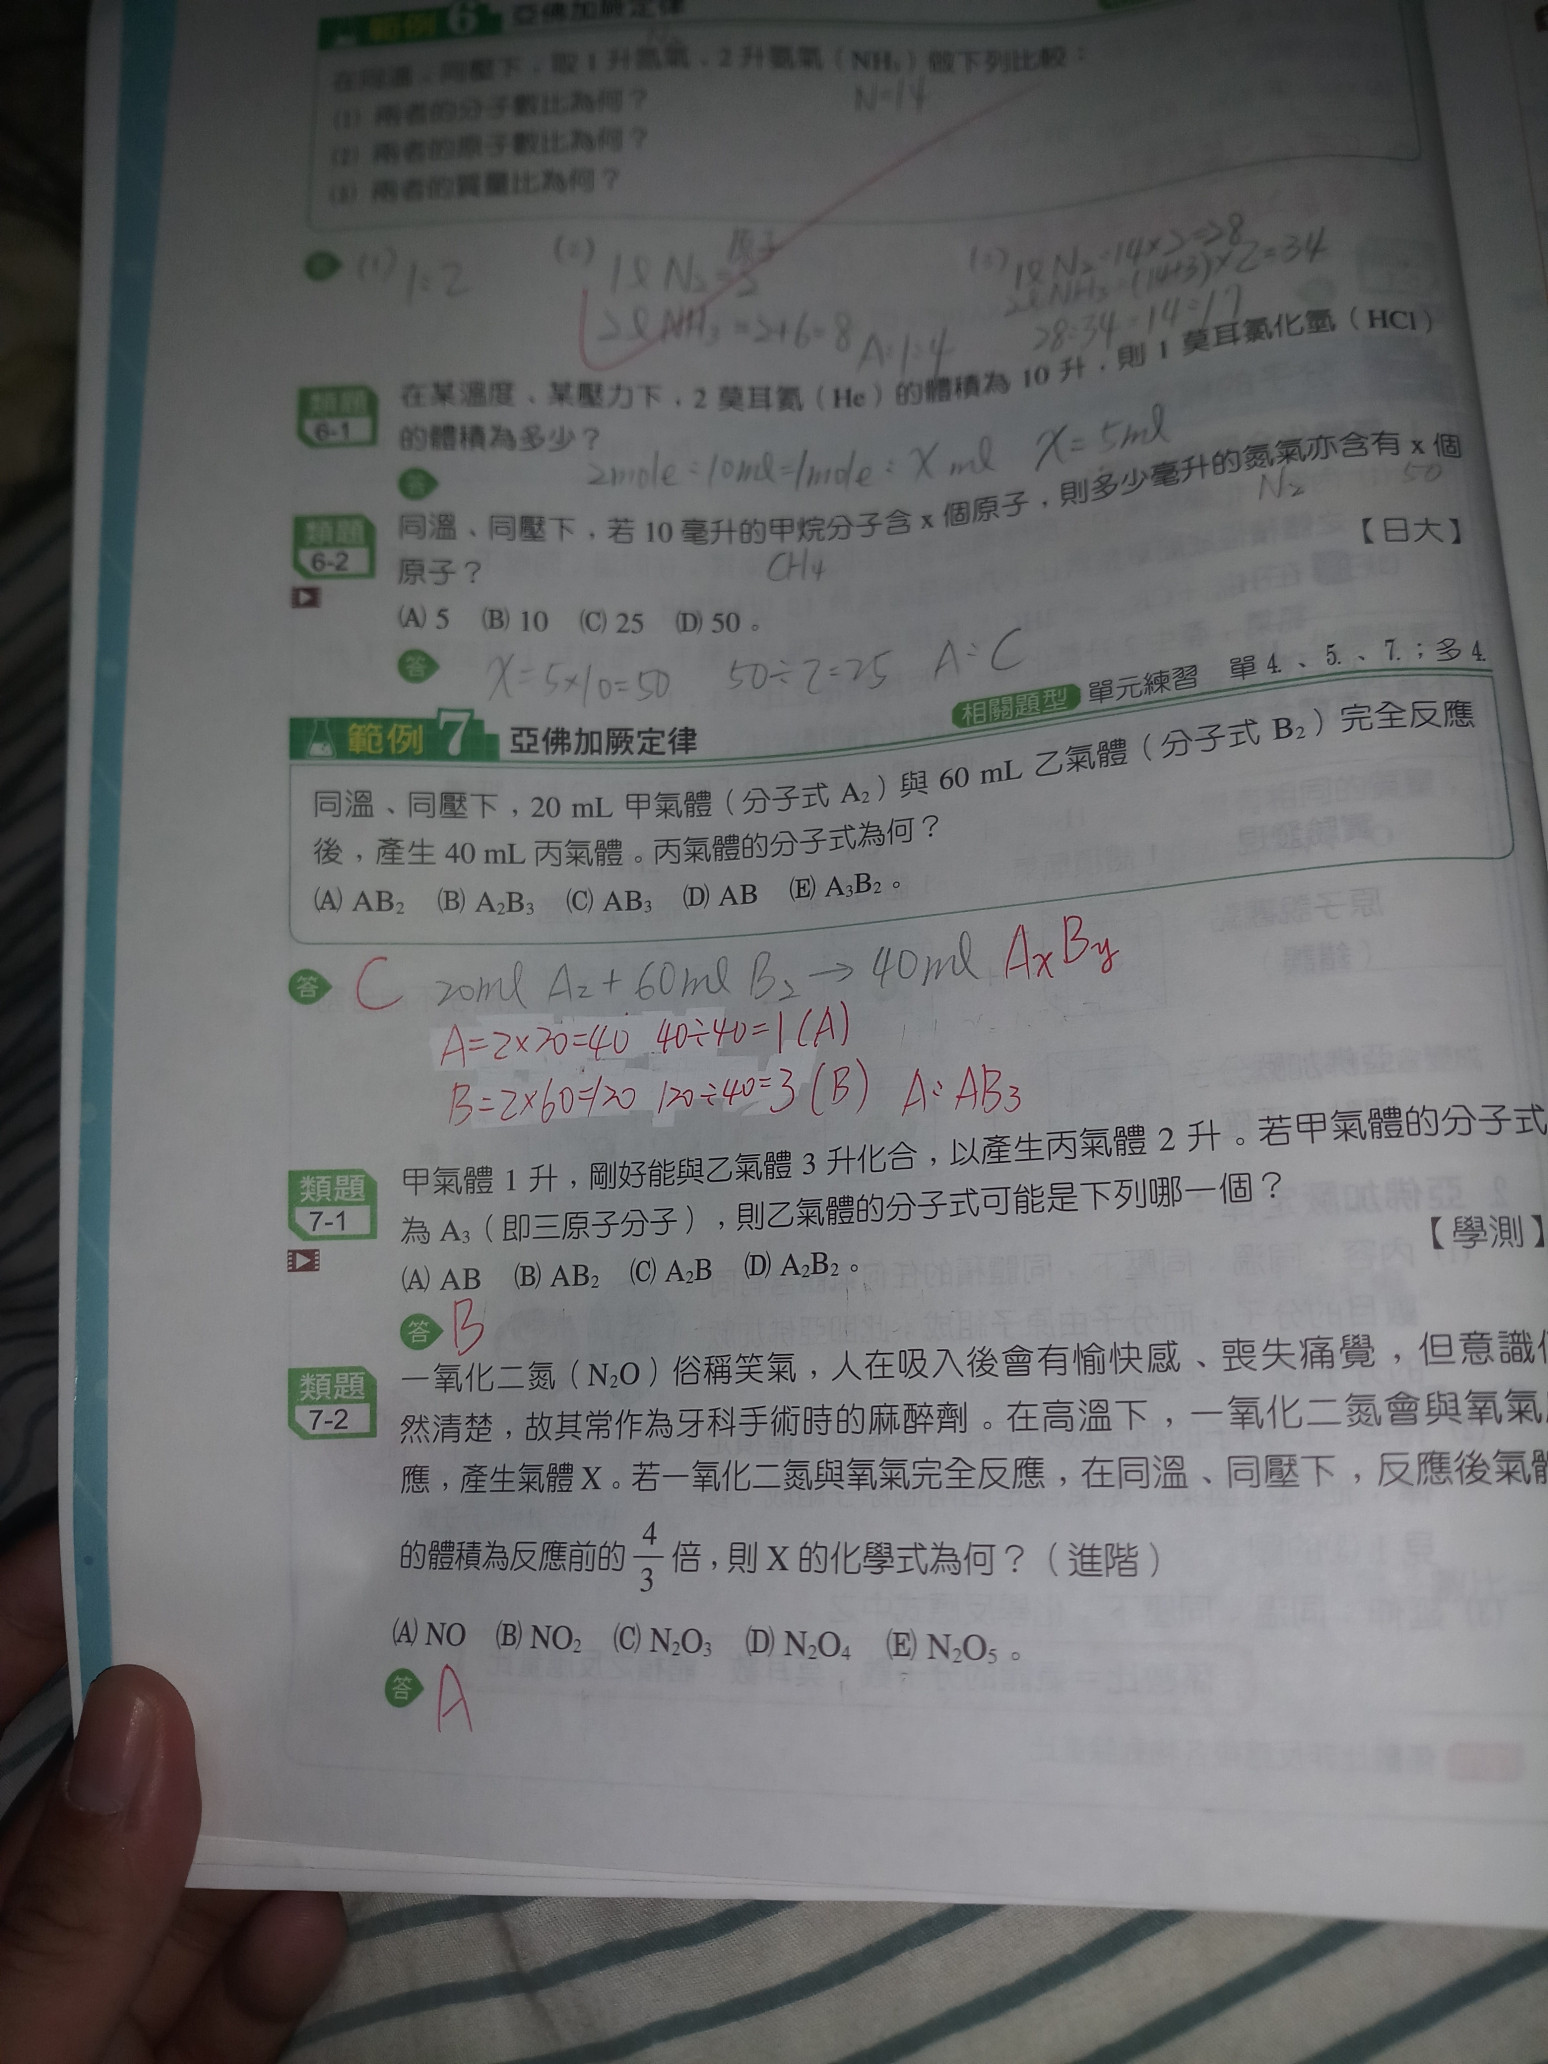 範例 6 亞佛加厥定律
在同溫、同壓下,取 1 升氮氣、2 升氨氣(NH₃)做下列比較:
N=14
(1) 兩者的分子數比為何?
(2) 兩者的原子數比為何?
(3) 兩者的質量比為何?
答 (1) 1:2
(2) 原子
1ℓ N₂=2
2ℓ NH₃=2+6=8 A:1:4
(3) 1ℓ N₂=14×2=28
2ℓ NH₃=(14+3)×2=34
28:34=14:17
類題 6-1 在某溫度、某壓力下,2 莫耳氦(He)的體積為 10 升,則 1 莫耳氯化氫(HCl)
的體積為多少?
答 2mole:10ml=1mole:X ml X=5ml
類題 6-2 同溫、同壓下,若 10 毫升的甲烷分子含 x 個原子,則多少毫升的氮氣亦含有 x 個
CH₄ N₂ 50
原子? 【日大】
(A) 5 (B) 10 (C) 25 (D) 50。
答 X=5×10=50 50÷2=25 A:C
相關題型 單元練習 單 4.、5.、7.;多 4.
範例 7 亞佛加厥定律
同溫、同壓下,20 mL 甲氣體(分子式 A₂)與 60 mL 乙氣體(分子式 B₂)完全反應
後,產生 40 mL 丙氣體。丙氣體的分子式為何?
(A) AB₂ (B) A₂B₃ (C) AB₃ (D) AB (E) A₃B₂。
答 C 20ml A₂+60ml B₂→40ml AxBy
A=2×20=40 40÷40=1(A)
B=2×60=120 120÷40=3(B) A:AB₃
類題 7-1 甲氣體 1 升,剛好能與乙氣體 3 升化合,以產生丙氣體 2 升。若甲氣體的分子式
為 A₃(即三原子分子),則乙氣體的分子式可能是下列哪一個?
【學測】
(A) AB (B) AB₂ (C) A₂B (D) A₂B₂。
答 B
類題 7-2 一氧化二氮(N₂O)俗稱笑氣,人在吸入後會有愉快感、喪失痛覺,但意識
然清楚,故其常作為牙科手術時的麻醉劑。在高溫下,一氧化二氮會與氧氣
應,產生氣體 X。若一氧化二氮與氧氣完全反應,在同溫、同壓下,反應後氣體
的體積為反應前的 4/3 倍,則 X 的化學式為何?(進階)
(A) NO (B) NO₂ (C) N₂O₃ (D) N₂O₄ (E) N₂O₅。
答 A